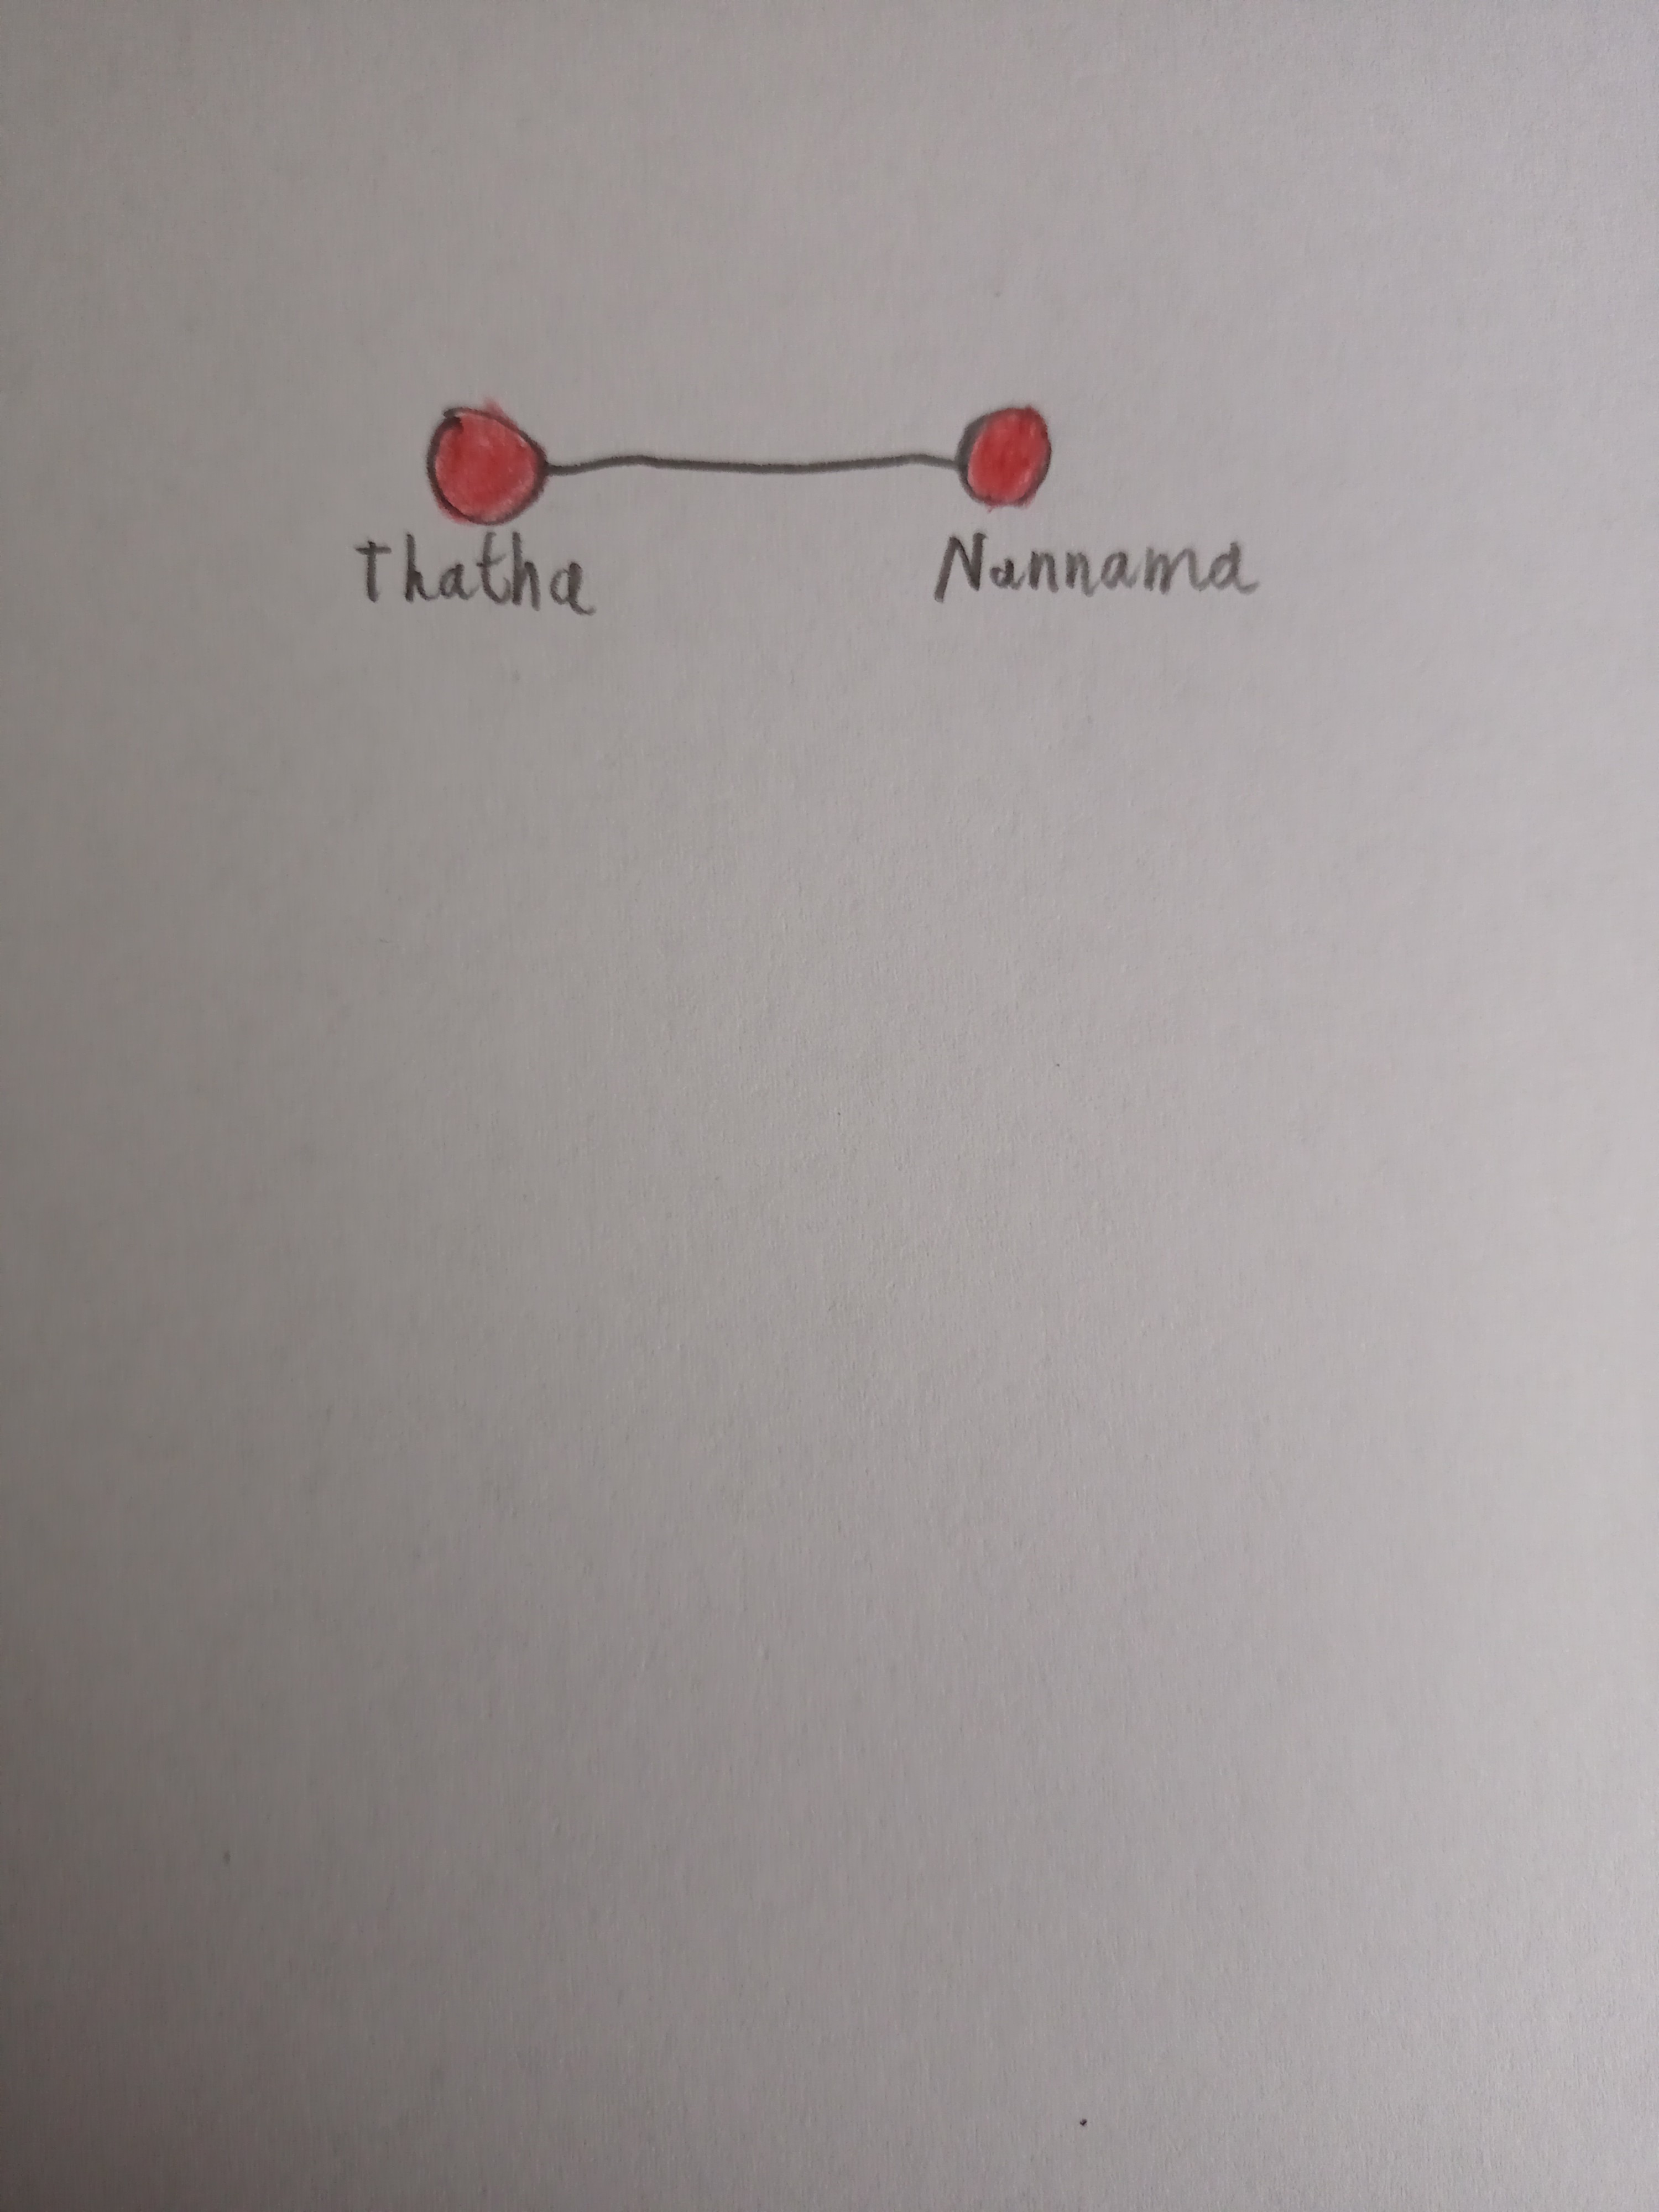 Thatha Nannama